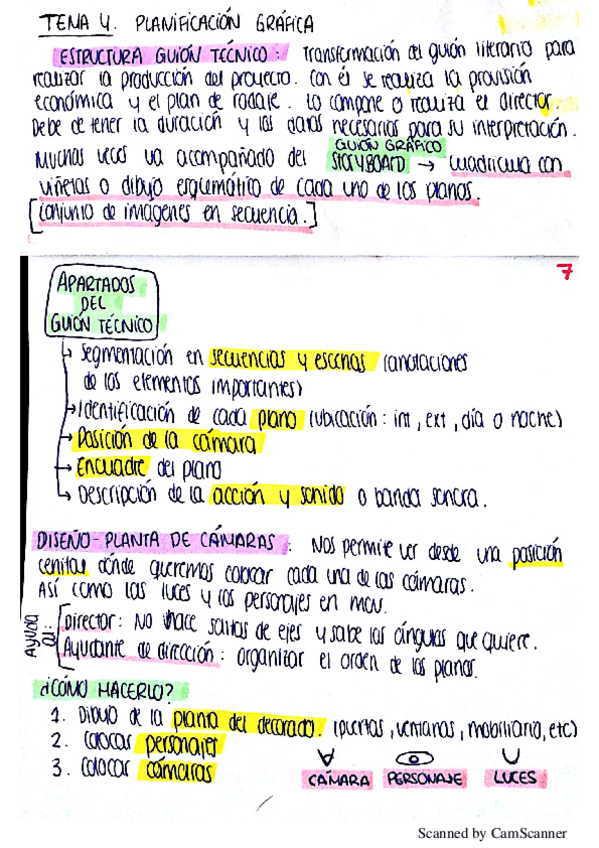 TEMA 4. PLANIFICACIÓN GRÁFICA
ESTRUCTURA GUIÓN TÉCNICO: Transformación del guión literario para
realizar la producción del proyecto. Con él se realiza la provisión
económica y el plan de rodaje. Lo compone o realiza el director.
Debe de tener la duración y los datos necesarios para su interpretación.
GUIÓN GRÁFICO
Muchas veces va acompañado del STORYBOARD → cuadrícula con
viñetas o dibujo esquemático de cada uno de los planos.
[conjunto de imágenes en secuencia.]
7
APARTADOS
DEL
GUIÓN TÉCNICO
→ Segmentación en secuencias y escenas (anotaciones
de los elementos importantes)
→ Identificación de cada plano (ubicación: int, ext, día o noche)
→ Posición de la cámara
→ Encuadre del plano
→ Descripción de la acción y sonido o banda sonora.
DISEÑO-PLANTA DE CÁMARAS: Nos permite ver desde una posición
cenital dónde queremos colocar cada una de las cámaras.
Así como las luces y los personajes en mov.
Ayuda al:
Director: No hace saltos de ejes y sabe los ángulos que quiere.
Ayudante de dirección: organizar el orden de los planos.
¿CÓMO HACERLO?
1. Dibujo de la planta del decorado. (puertas, ventanas, mobiliario, etc)
2. Colocar personajes
3. Colocar cámaras
CÁMARA PERSONAJE LUCES
Scanned by CamScanner